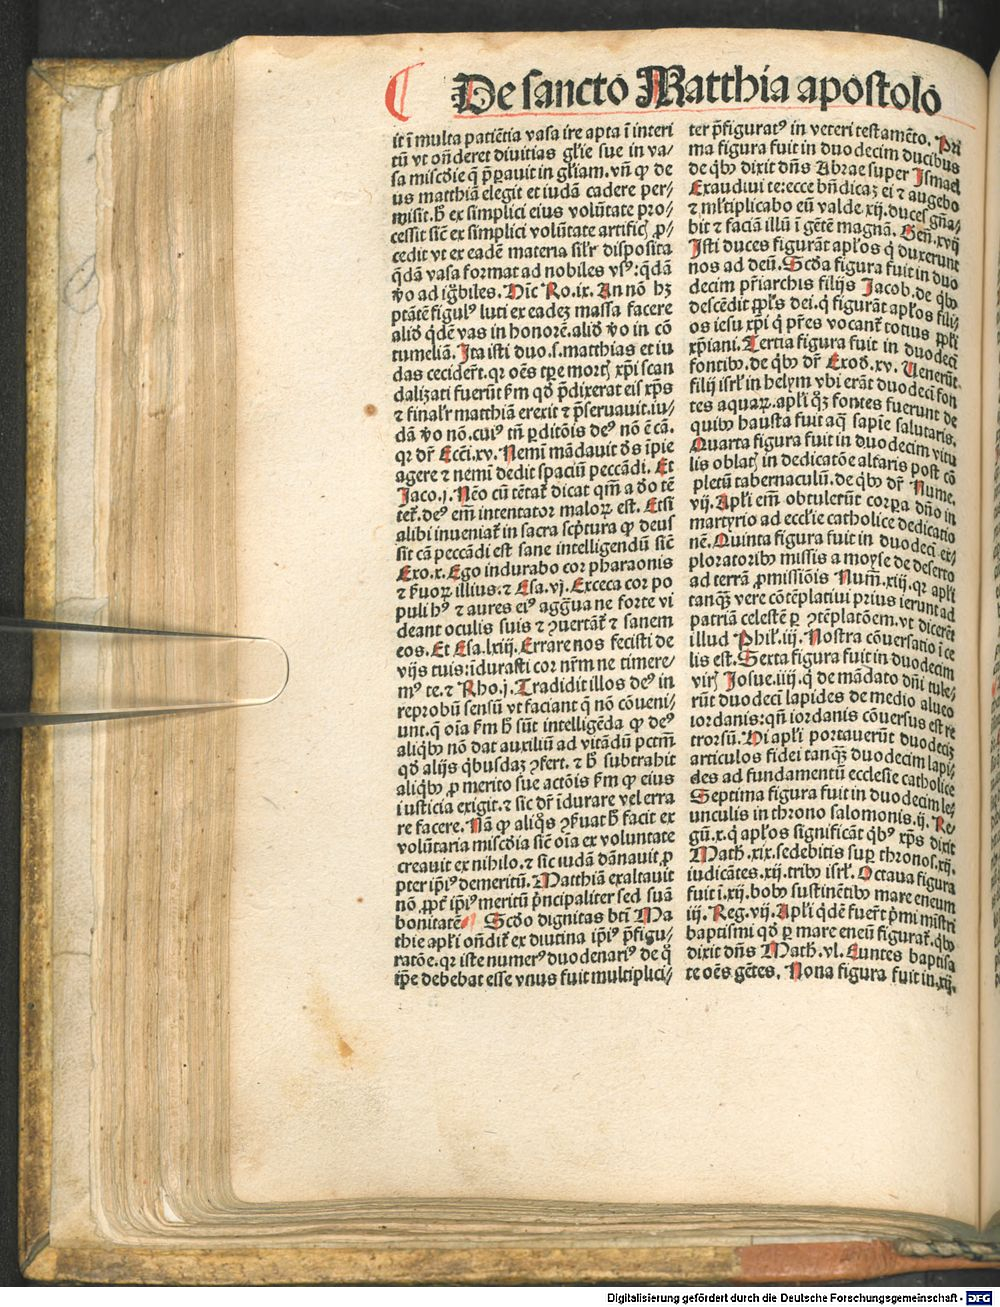 De sancto Matthia apostolo
it ī multa patiētia vasa ire apta ī interi
tū vt oñderet diuitias gl̃ie sue in va/
sa miscd̄ie q̄ p̄parauit in gl̃iam. vñ ꝙ de
us matthiā elegit et iudā cadere per⸗
misit. h̄ ex simplici eius volūtate pro⸗
cessit sic̄ ex simplici volūtate artificꝭ ꝓ⸗
cedit vt ex eadē materia sil̃r disposita
q̄dā vasa format ad nobiles vsꝰ: q̄dā
v̄o ad ig̃biles. Hīc Ro. ix. An nō hꝫ
ptātē figulꝰ luti ex eadeꝫ massa facere
aliđ q̄dē vas in honorē. aliđ v̄o in cō
tumeliā. Ita isti duo .s. matthias et iu
das cecider̄t. qꝛ oēs tꝑe mortꝭ xp̄i scan
dalizati fuerūt ẜm qđ p̄dixerat eis xp̄s
⁊ final̃r matthiā erexit ⁊ p̄seruauit. iu/
dā v̄o nō. cuiꝰ tñ ꝑditōis deꝰ nō ē cā.
qꝛ dr̄ Ecc̄i. xv. Nemī mādauit d̄s īpie
agere ⁊ nemī dedit spaciū peccādi. Et
Jaco. j. Nēo cū tētat̄ dicat qm̄ a đo tē
tet̄. deꝰ em̄ intentator maloꝝ est. Etsi
alibi inueniat̄ in sacra sc̄ptura ꝙ deus
sit cā peccādi est sane intelligendū sic̄
Exo. x. Ego indurabo cor pharaonis
⁊ ẜuoꝝ illius. ⁊ Esa. vj. Exceca cor po
puli hꝰ ⁊ aures eiꝰ agg̃ua ne forte vi
deant oculis suis ⁊ ꝯuertāt̄ ⁊ sanem
eos. Et Esa. lxiij. Errare nos fecisti de
vijs tuis: īdurasti cor nr̄m ne timere⸗
mꝰ te. ⁊ Rho. j. Tradidit illos deꝰ in
reprobū sensū vt faciant q̄ nō cōueni⸗
unt. q̄ oīa ẜm h̄ sūt intelligēda ꝙ deꝰ
aliqƀꝫ nō dat auxiliū ad vitādū pctm̄
qđ alijs qƀusdaꝫ ꝯfert. ⁊ h̄ subtrahit
aliqƀꝫ ꝓ merito sue actōis ẜm ꝙ eius
iusticia exigit. ⁊ sic dr̄ īdurare vel erra
re facere. Nā ꝙ aliq̊s ꝯẜuat h̄ facit ex
volūtaria miscd̄ia sic̄ oīa ex voluntate
creauit ex nihilo. ⁊ sic iudā dānauit. ꝓ
pter ip̄iꝰ demeritū. Matthiā exaltauit
nō ꝓpt̄ ip̄iꝰ meritū p̄ncipaliter sed suā
bonitatē. Scđo dignitas bt̄i Ma
thie apl̃i oñdit̄ ex diutina ip̄iꝰ p̄figu⸗
ratōe. qꝛ iste numerꝰ duodenariꝰ de q̊
ip̄e debebat esse vnus fuit multiplici⸗
ter p̄figuratꝰ in veteri testamēto. Pri
ma figura fuit in duodecim ducibus
de qƀꝫ dixit dñs Abrae super Ismael
Exaudiui te: ecce bñdicaꝫ ei ⁊ augebo
⁊ ml̃tiplicabo eū valde .xij. duces gña⸗
bit ⁊ faciā illū ī gētē magnā. Geñ. xvij
Isti duces figurāt apl̃os q̄ duxerunt
nos ad deū. Scđa figura fuit in duo
decim pr̄iarchis filijs Jacob. de qƀꝫ
descēdit ppl̃s dei. q̄ figurāt apl̃os filij⸗
os iesu xp̄i q̄ pr̄es vocant̄ totius ppl̃i
xp̄iani. Tertia figura fuit in duodeci
fontibꝫ. de qƀꝫ dr̄ Exođ. xv. Venerūt
filij isrl̃ in helym vbi erāt duodeci fon
tes aquaꝝ. apl̃i q̊ꝫ fontes fuerunt de
quibꝫ hausta fuit aq̄ sapīe salutaris.
Quarta figura fuit in duodecim vitu
lis oblatꝭ in dedicatōe altaris post cō
pletū tabernaculū. de qƀꝫ dr̄ Nume.
vij. Apl̃i em̄ obtulerūt corꝑa dño in
martyrio ad eccl̃ie catholice dedicatio
nē. Quinta figura fuit in duodeci ex⸗
ploratoribꝫ missis a moyse de deserto
ad terrā ꝓmissiōis Num̄. xiij. qꝛ apl̃i
tanqꝫ vere cōtēplatiui prius ierunt ad
patriā celestē ꝑ ꝯtēplatōem. vt dicerēt
illud Phil̃. iij. Nostra cōuersatio ī ce
lis est. Sexta figura fuit in duodecim
virꝭ Josue. iiij. q̄ de mādato dñi tule⸗
rūt duodeci lapides de medio alueo
iordanis: qñ iordanis cōuersus est re
trorsū. Hi apl̃i portauerūt duodeciꝫ
articulos fidei tanqꝫ duodecim lapi⸗
des ad fundamentū ecclesie catholice
Septima figura fuit in duodecim le⸗
unculis in throno salomonis. ij. Re⸗
gū. x. q̄ apl̃os significāt qƀꝰ xp̄s dixit
Math. xix. sedebitis suꝑ thronos .xij.
iudicātes .xij. tribꝫ isrl̃. Octaua figura
fuit ī .xij. bobꝫ sustinētibꝫ mare eneum
iij. Reg. vij. Apl̃i q̄dē fuer̄t p̄mi mīstri
baptismi qđ ꝑ mare eneū figurat̄. qƀꝫ
dixit dñs Math. vl. Euntes baptisa
te oēs gētes. Nona figura fuit in .xij.
Digitalisierung gefördert durch die Deutsche Forschungsgemeinschaft - DFG